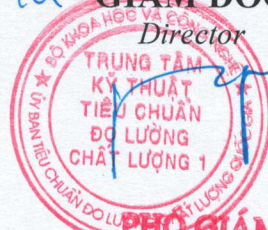 GIÁM ĐỐC
Director
BỘ KHOA HỌC VÀ CÔNG NGHỆ
TRUNG TÂM
KỸ THUẬT
TIÊU CHUẨN
ĐO LƯỜNG
CHẤT LƯỢNG 1
ỦY BAN TIÊU CHUẨN ĐO LƯỜNG CHẤT LƯỢNG QUỐC GIA
PHÓ GIÁM